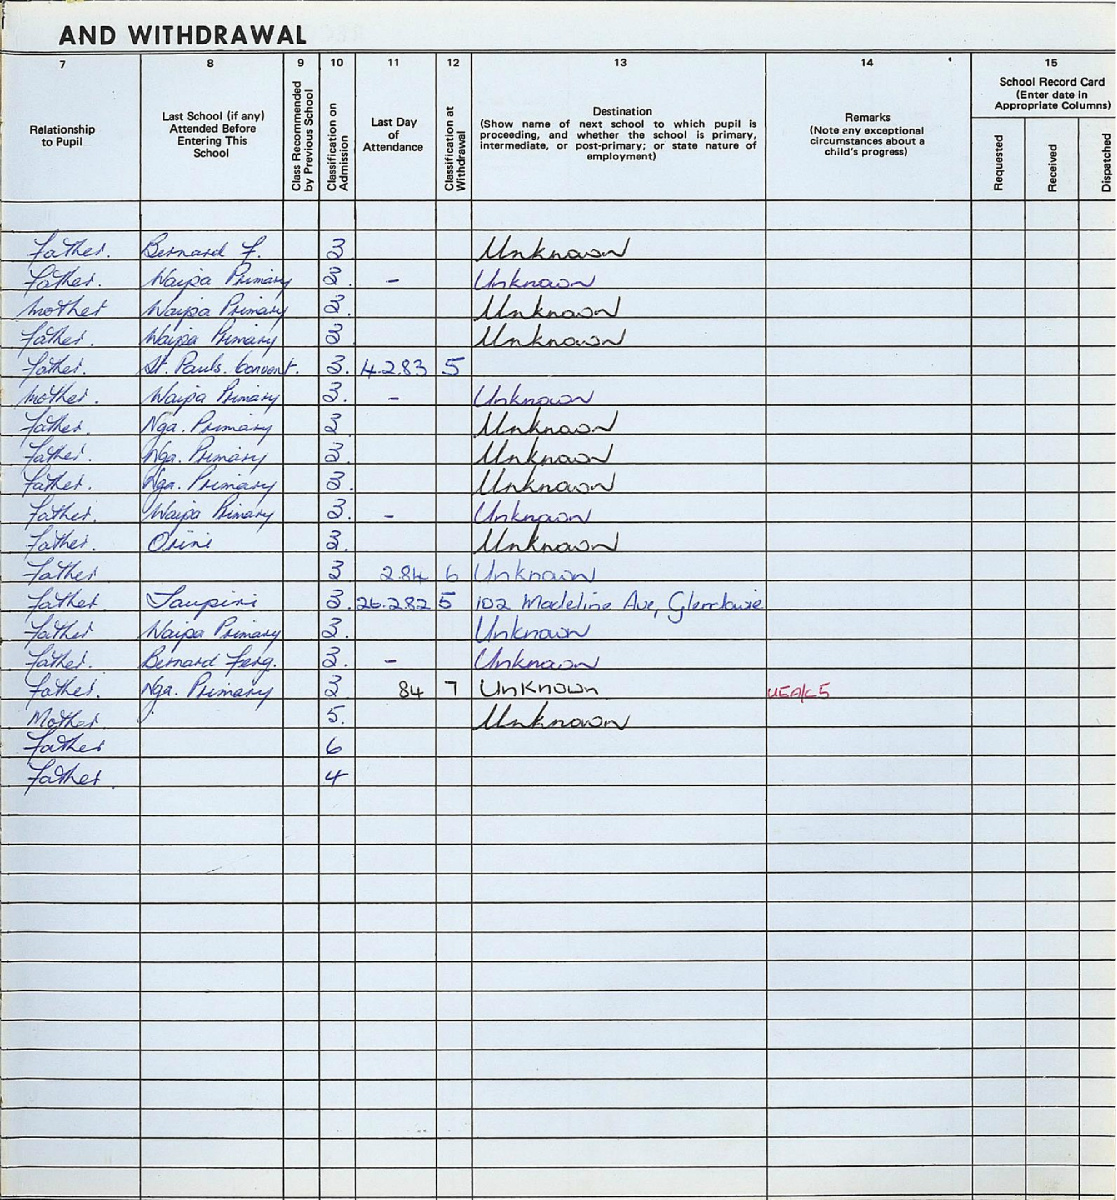 AND WITHDRAWAL
7 8 9 10 11 12 13 14 15
Relationship to Pupil
Last School (if any) Attended Before Entering This School
Class Recommended by Previous School
Classification on Admission
Last Day of Attendance
Classification at Withdrawal
Destination
(Show name of next school to which pupil is proceeding, and whether the school is primary, intermediate, or post-primary; or state nature of employment)
Remarks
(Note any exceptional circumstances about a child's progress)
School Record Card
(Enter date in Appropriate Columns)
Requested
Received
Dispatched
Father. Bernard F. 3 Unknown
Father. Waipa Primary 3. – Unknown
Mother Waipa Primary 3. Unknown
Father. Waipa Primary 3 Unknown
Father. St. Pauls. Convent. 3. 4.2.83 5
Mother. Waipa Primary 3. – Unknown
Father. Nga. Primary 3 Unknown
Father. Nga. Primary 3. Unknown
Father. Nga. Primary 3. Unknown
Father. Waipa Primary 3. – Unknown
Father. Orini 3. Unknown
Father 3 2.84 6 Unknown
Father Taupiri 3. 26.2.82 5 102 Madeline Ave, Glendowie
Father Waipa Primary 3. Unknown
Father. Bernard Ferg. 3. – Unknown
Father. Nga. Primary 3 84 7 Unknown
Mother 5. Unknown
Father 6
Father. 4